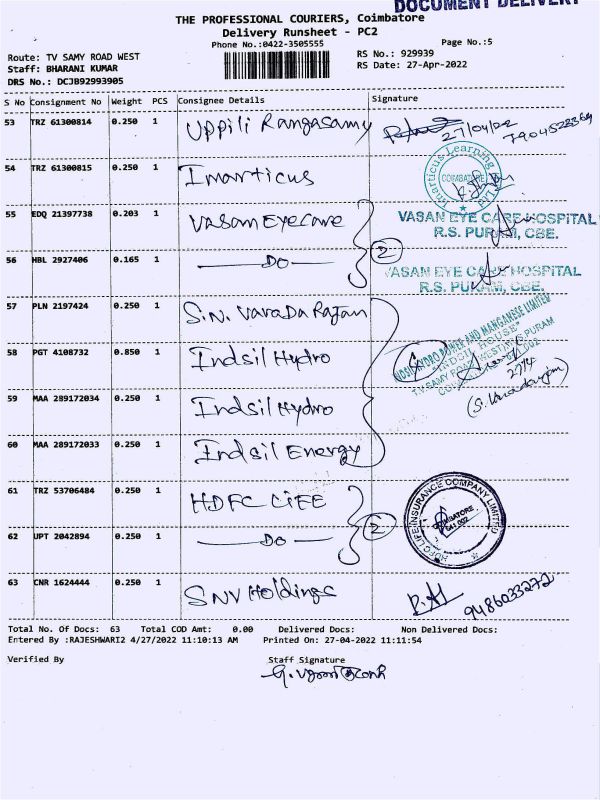 DOCUMENT DELIVERY
THE PROFESSIONAL COURIERS, Coimbatore
Delivery Runsheet - PC2
Phone No.:0422-3505555
Page No.:5
Route: TV SAMY ROAD WEST
RS No.: 929939
Staff: BHARANI KUMAR
RS Date: 27-Apr-2022
DRS No.: DCJB92993905
S No Consignment No Weight PCS Consignee Details Signature
53 TRZ 61300814 0.250 1 Uppili Rangasamy 27/04/22 7904528369
54 TRZ 61300815 0.250 1 Imarticus
Imarticus Learning
COIMBATORE
55 EDQ 21397738 0.203 1 Vasan Eye Care
VASAN EYE CARE HOSPITAL
R.S. PURAM, CBE.
2
56 HBL 2927406 0.165 1 DO
VASAN EYE CARE HOSPITAL
R.S. PURAM, CBE.
57 PLN 2197424 0.250 1 S.N. Varada Rajan
58 PGT 4108732 0.850 1 Indsil Hydro
INDSIL HYDRO POWER AND MANGANESE LIMITED
"INDSIL HOUSE"
T.V. SAMY ROAD (WEST), R.S. PURAM
27/4
(S. Varadarajan)
59 MAA 289172034 0.250 1 Indsil Hydro
60 MAA 289172033 0.250 1 Indsil Energy
61 TRZ 53706484 0.250 1 HDFC Life
2
HDFC LIFE INSURANCE COMPANY LIMITED
COIMBATORE
641 002
62 UPT 2042894 0.250 1 DO
63 CNR 1624444 0.250 1 SNV Holdings 9486033272
Total No. Of Docs: 63 Total COD Amt: 0.00 Delivered Docs: Non Delivered Docs:
Entered By :RAJESHWARI2 4/27/2022 11:10:13 AM Printed On: 27-04-2022 11:11:54
Verified By Staff Signature